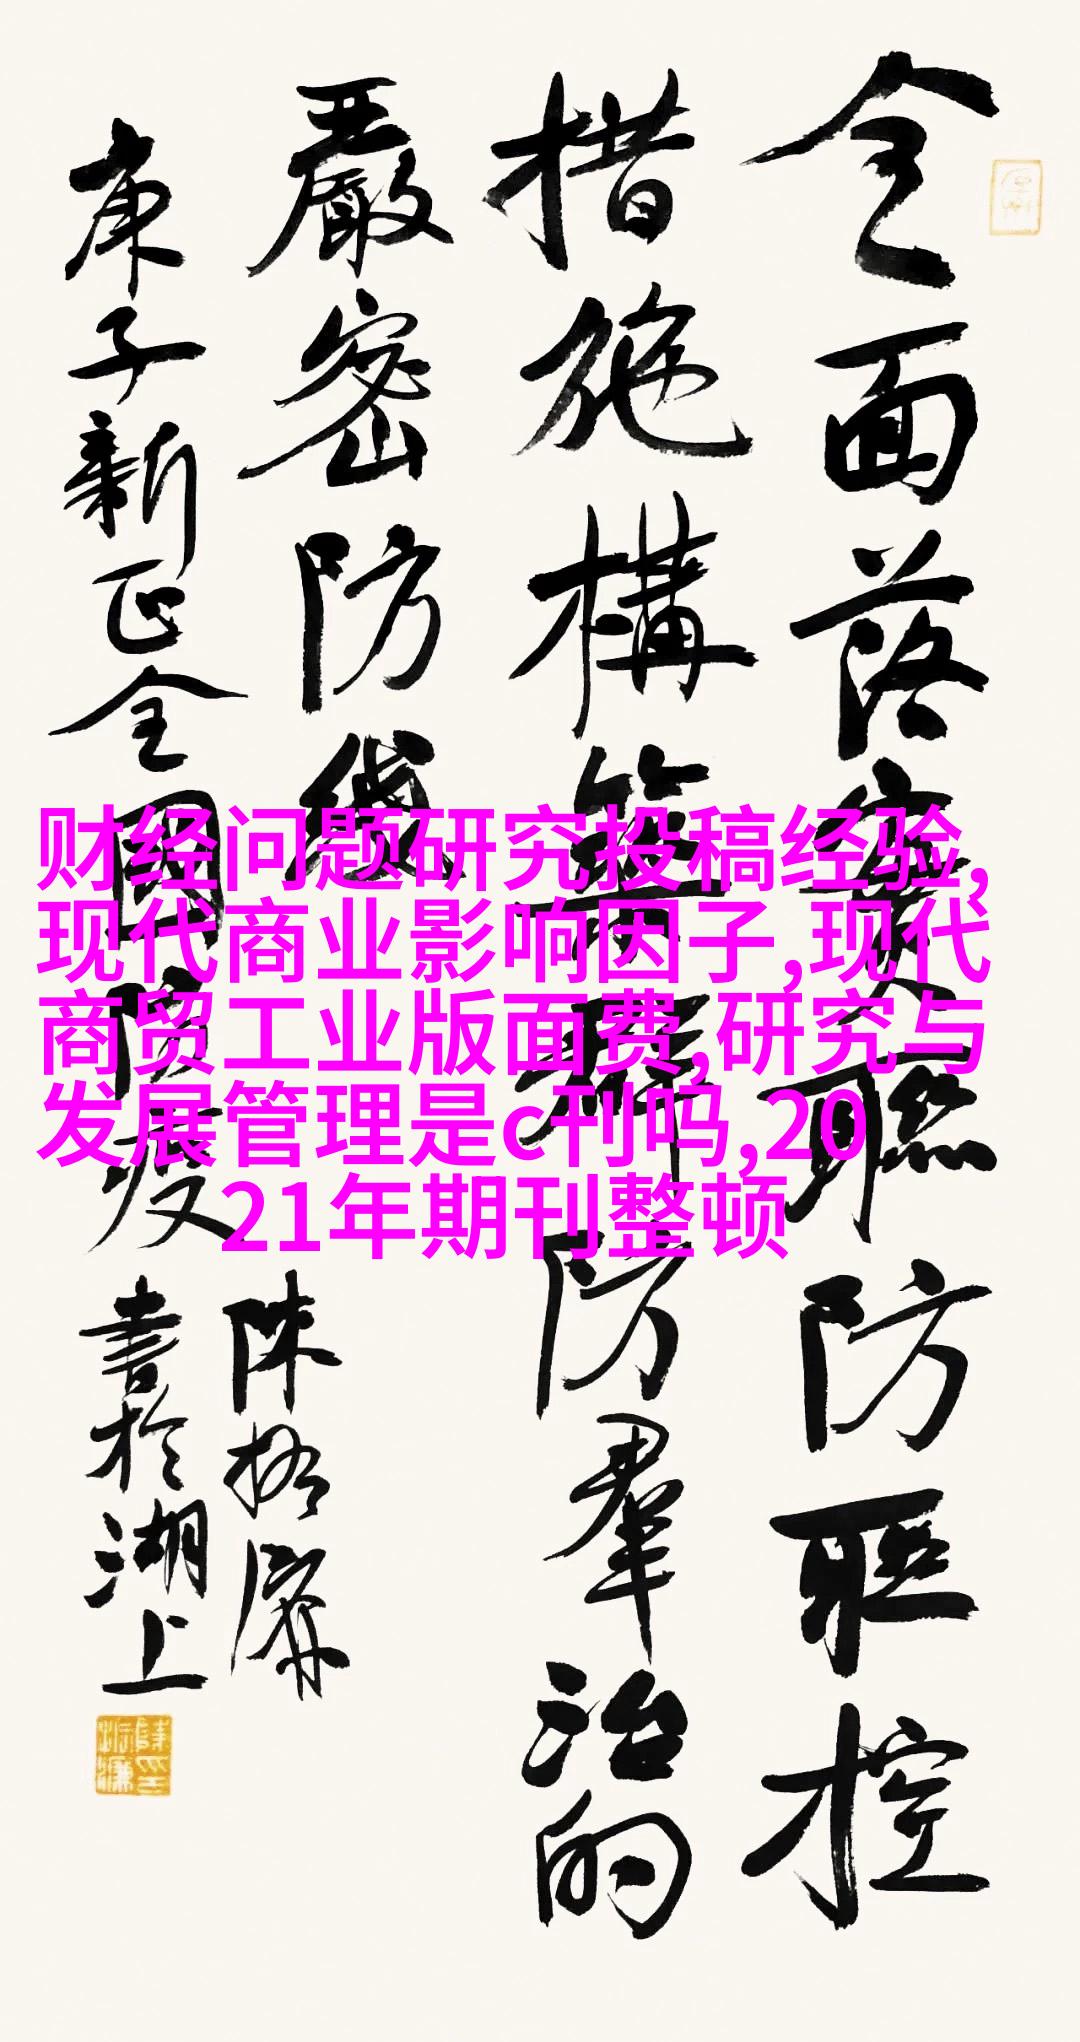 全面落實聯防聯控
措施構築群防羣治的
嚴密防线
庚子新正全國防疫
陳振濂
書於湖上
财经问题研究投稿经验,
现代商业影响因子,现代
商贸工业版面费,研究与
发展管理是c刊吗,20
21年期刊整顿